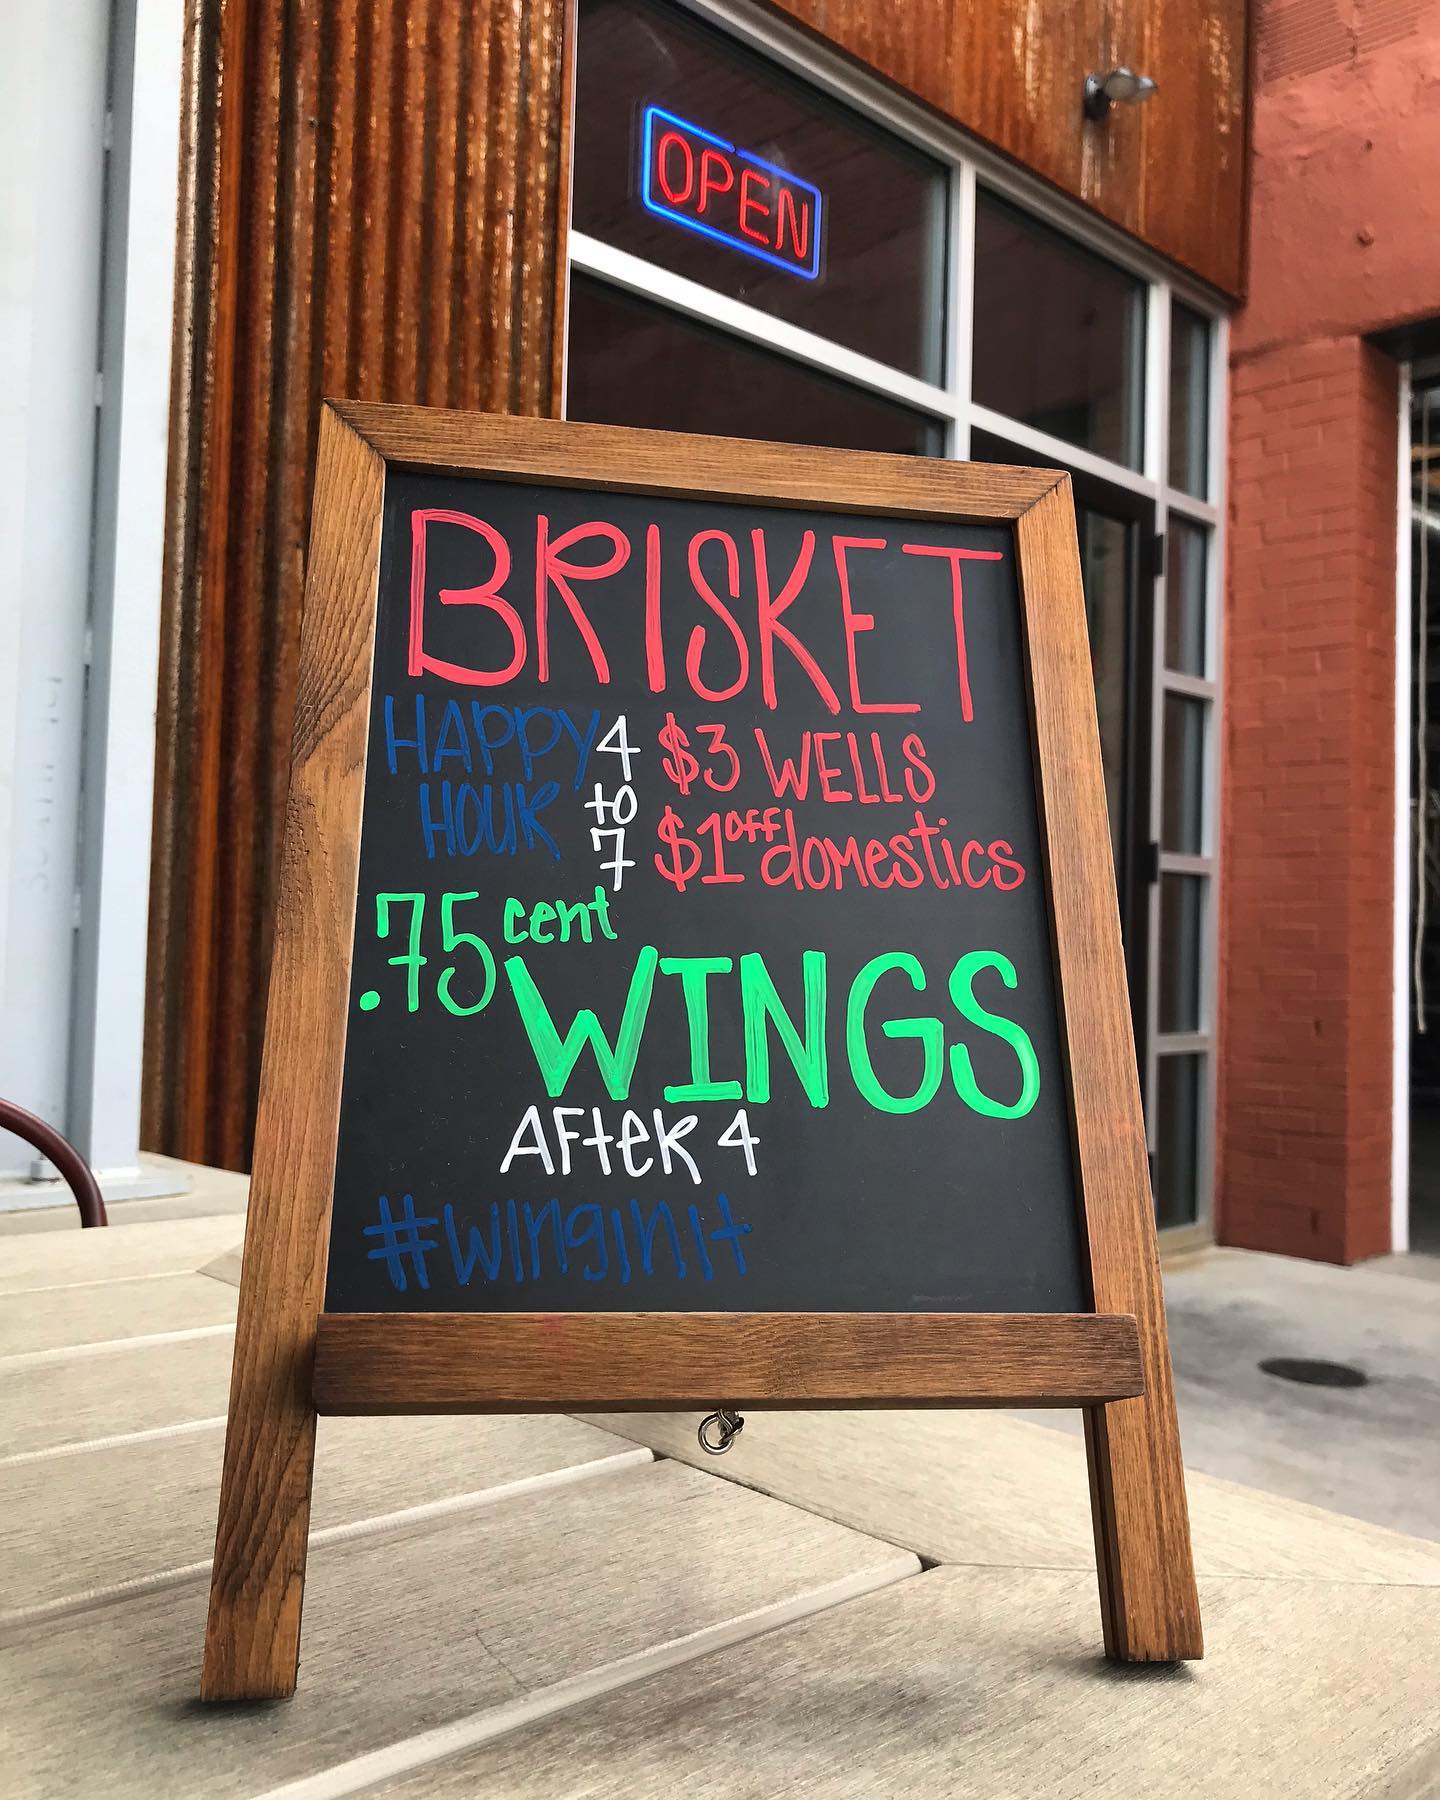 OPEN
BRISKET
HAPPY HOUR 4 to 7
$3 WELLS
$1 off domestics
.75 cent
WINGS
AFtER 4
#winginit